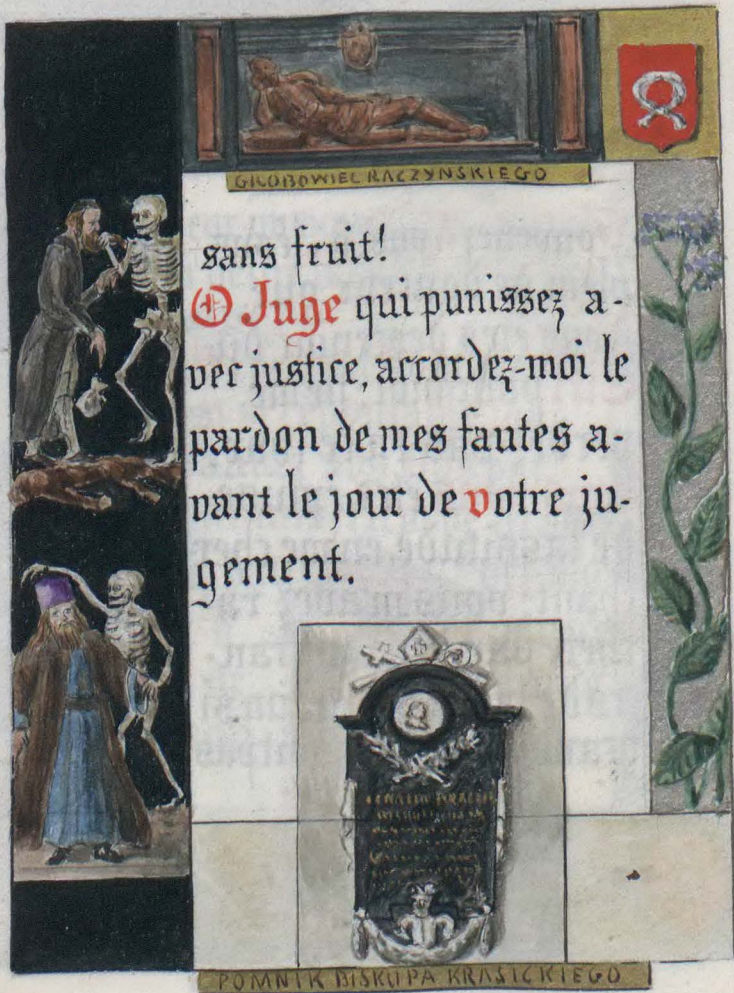 GROBOWIEC RACZYNSKIEGO
sans fruit!
O Juge qui punissez a-
vec justice, accordez-moi le
pardon de mes fautes a-
vant le jour de votre ju-
gement.
POMNIK BISKUPA KRASICKIEGO